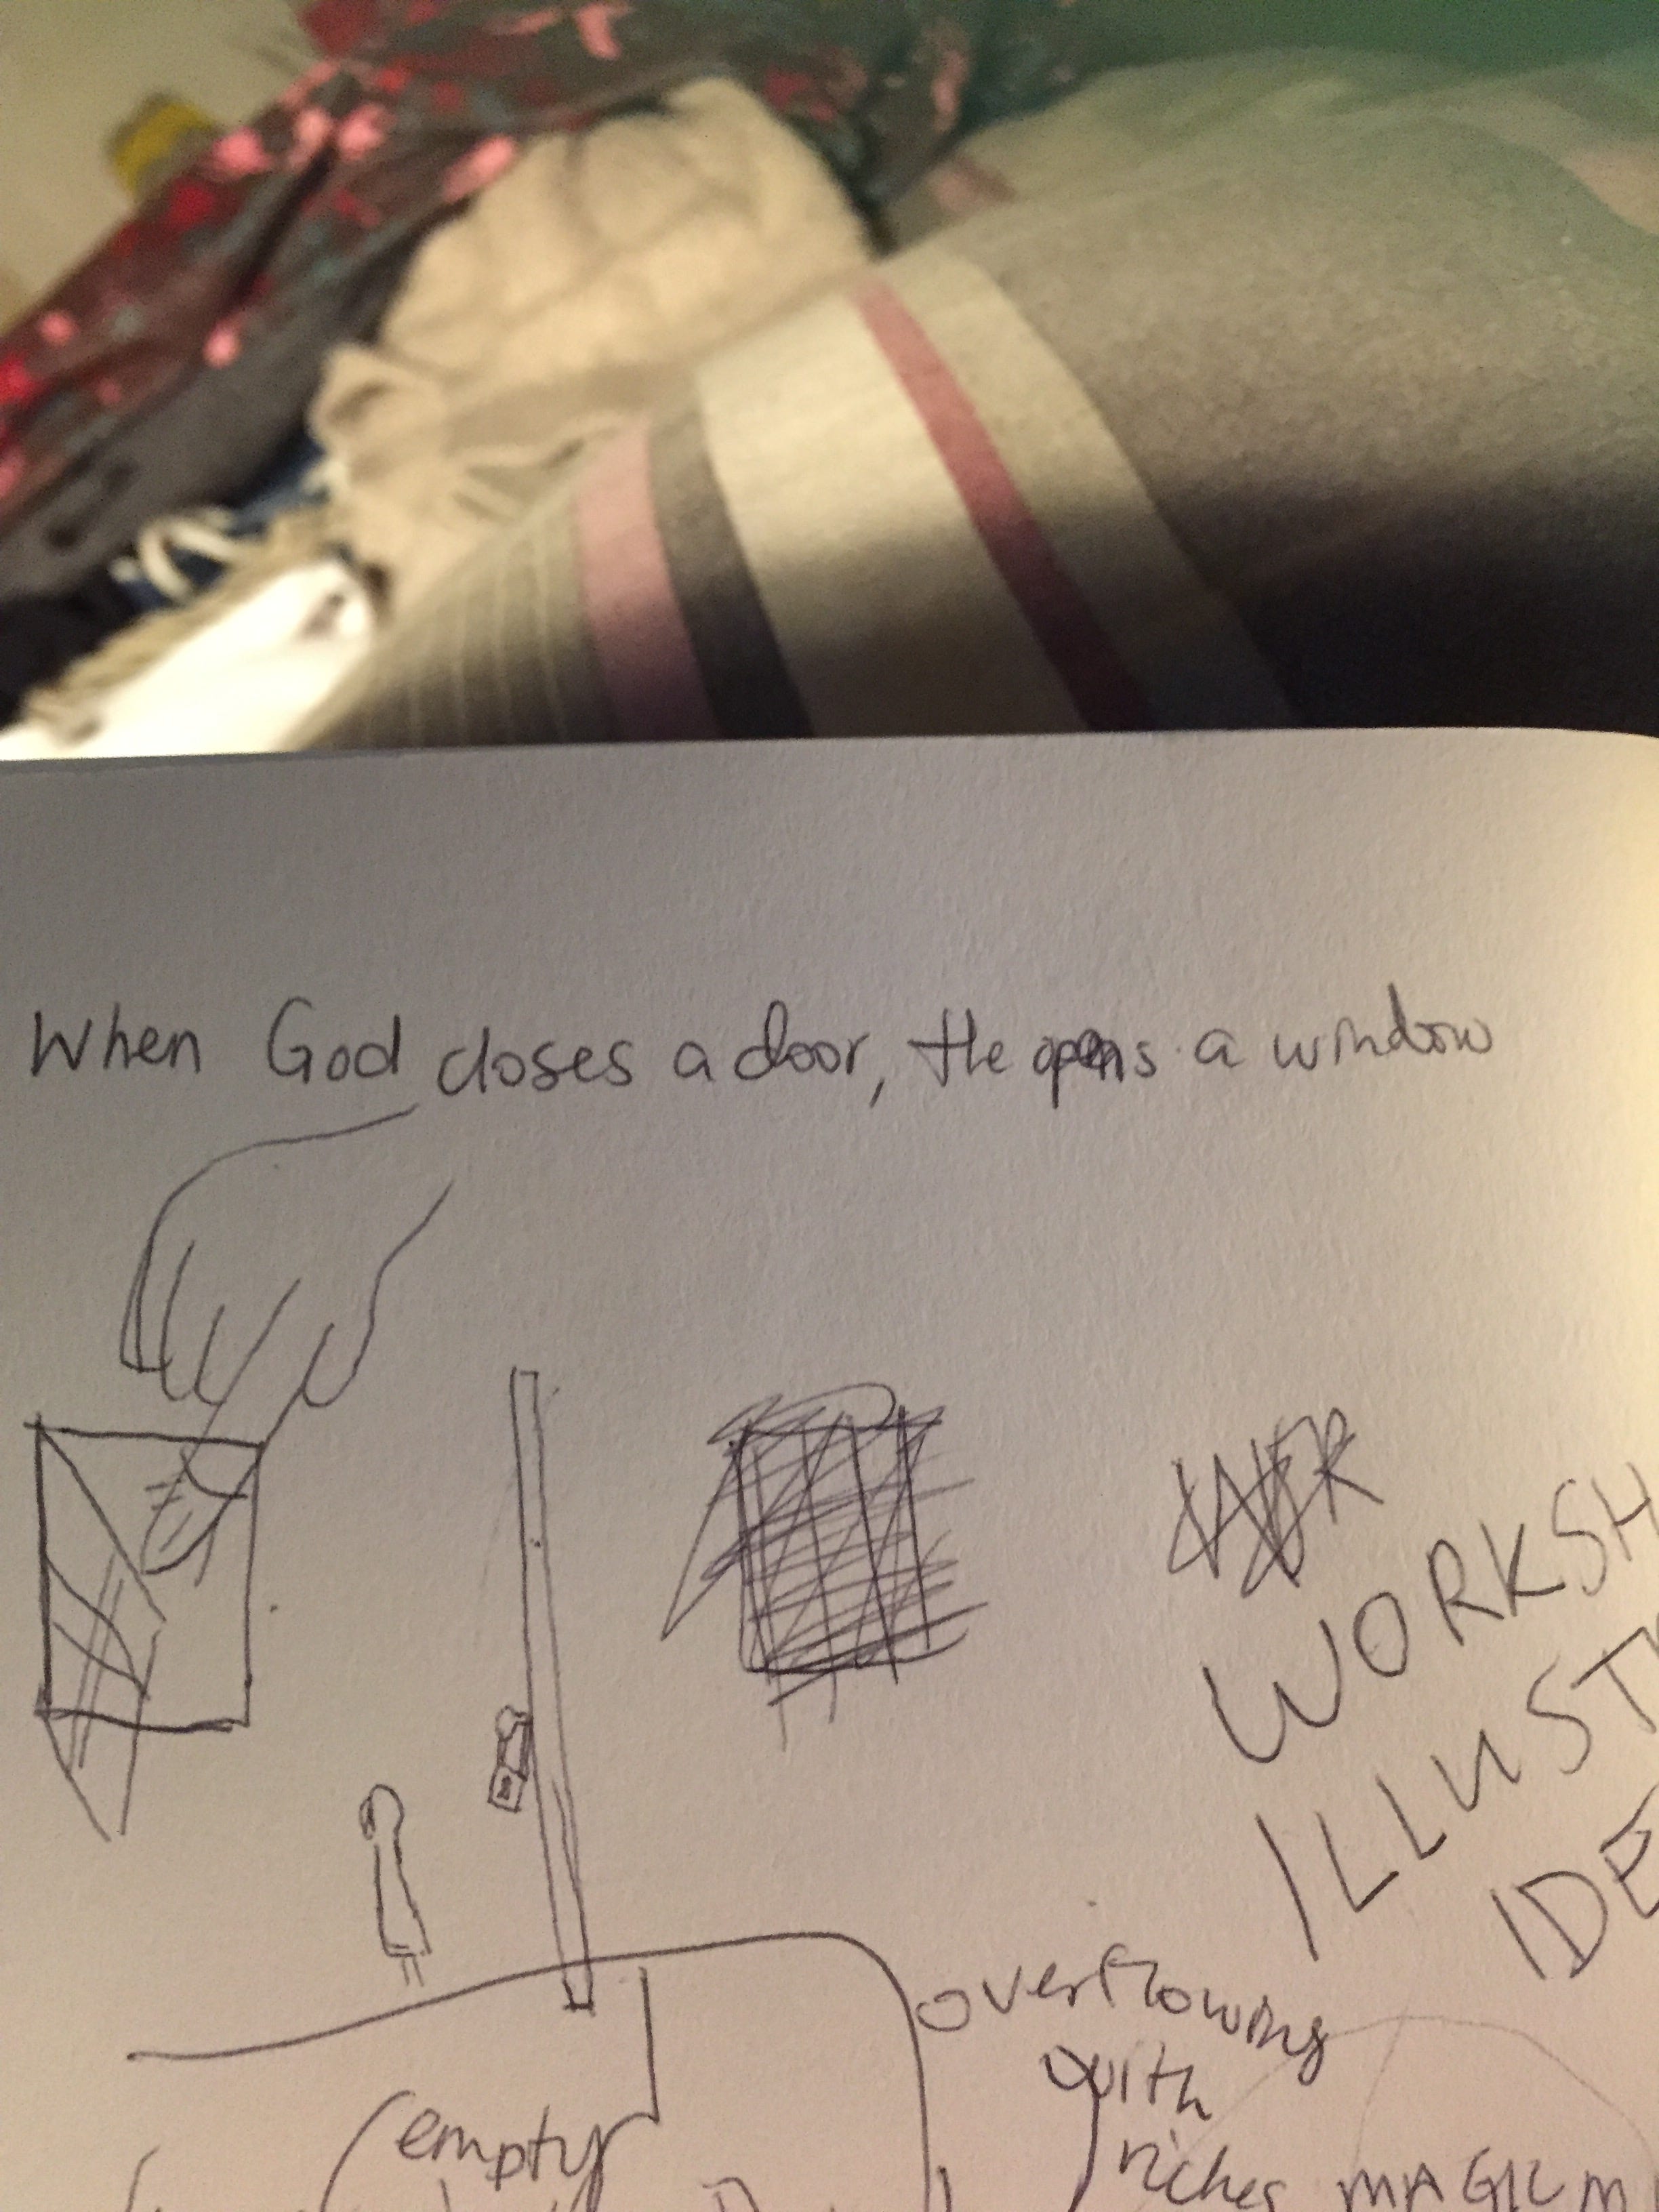 When God closes a door, He opens a window
WORKSH
ILLUST
IDE
overflowing
with
riches MAGICM
empty